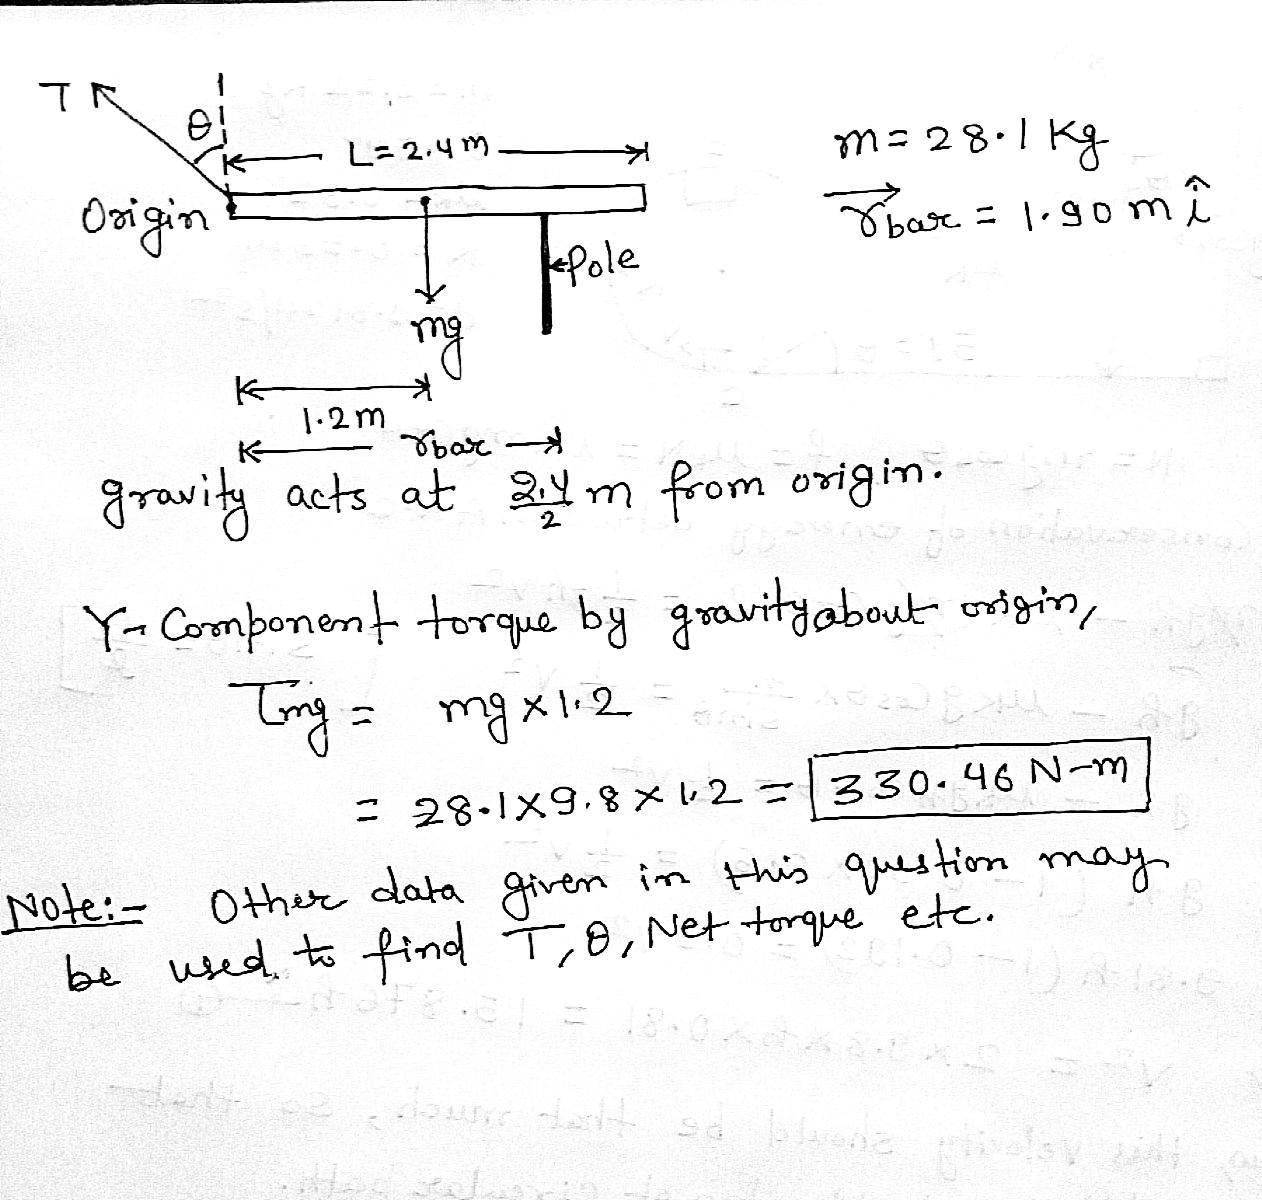 T
θ
L=2.4m
m=28.1 Kg
Origin
rbar = 1.90 m î
Pole
mg
1.2m
rbar
gravity acts at 2.4/2 m from origin.
Y-Component torque by gravity about origin,
Tmg = mg×1.2
= 28.1×9.8×1.2 = 330.46 N-m
Note:- Other data given in this question may
be used to find T, θ, Net torque etc.